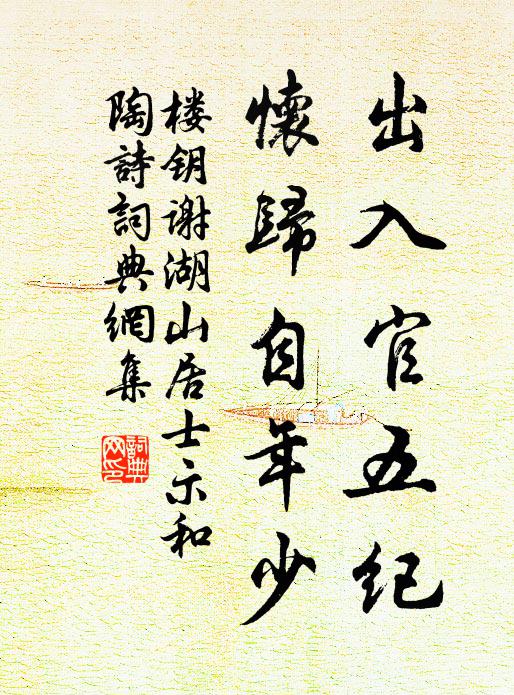 出入官五纪
懷歸自年少
楼钥谢湖山居士示和
陶詩詞典網集
詞典
网印